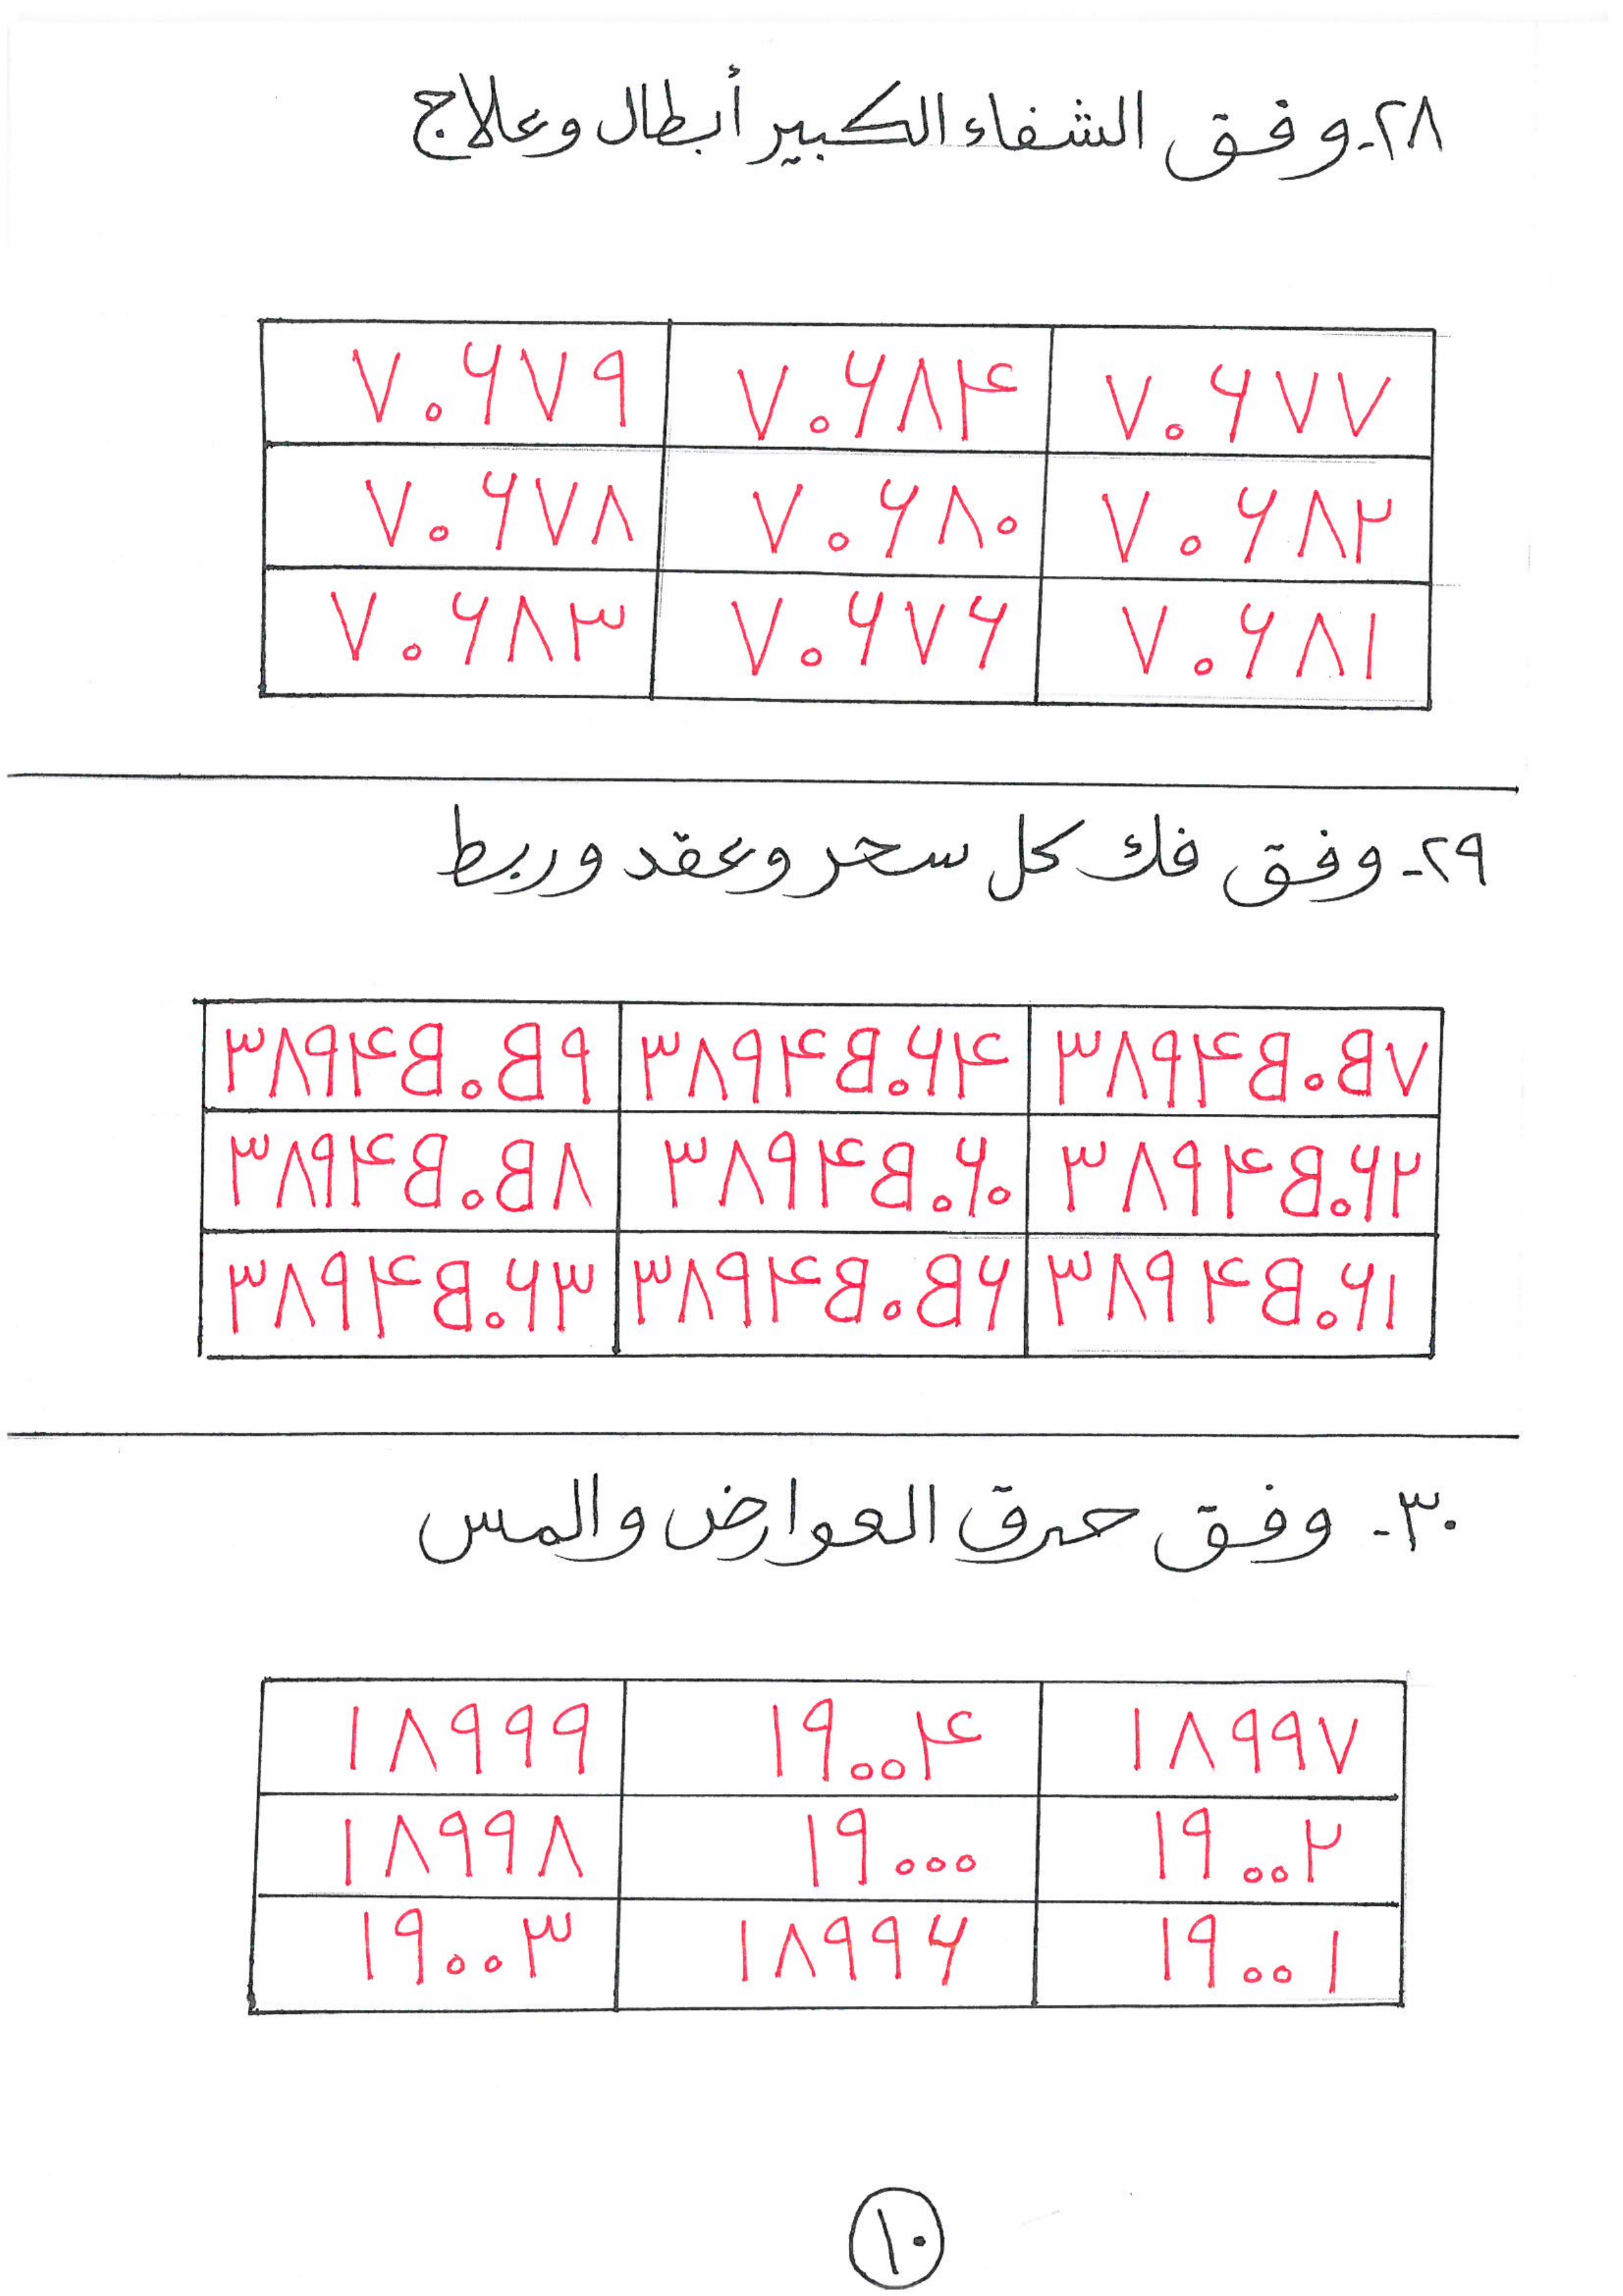 ٢٨- وفق الشفاء الكبير أبطال وعلاج
٧٠٦٧٧ ٧٠٦٨٤ ٧٠٦٧٩
٧٠٦٨٢ ٧٠٦٨٠ ٧٠٦٧٨
٧٠٦٨١ ٧٠٦٧٦ ٧٠٦٨٣
٢٩- وفق فك كل سحر وعقد وربط
٣٨٩٤٥٠٥٧ ٣٨٩٤٥٠٦٤ ٣٨٩٤٥٠٥٩
٣٨٩٤٥٠٦٢ ٣٨٩٤٥٠٦٠ ٣٨٩٤٥٠٥٨
٣٨٩٤٥٠٦١ ٣٨٩٤٥٠٥٦ ٣٨٩٤٥٠٦٣
٣٠- وفق حرق العوارض والمس
١٨٩٩٧ ١٩٠٠٤ ١٨٩٩٩
١٩٠٠٢ ١٩٠٠٠ ١٨٩٩٨
١٩٠٠١ ١٨٩٩٦ ١٩٠٠٣
١٠